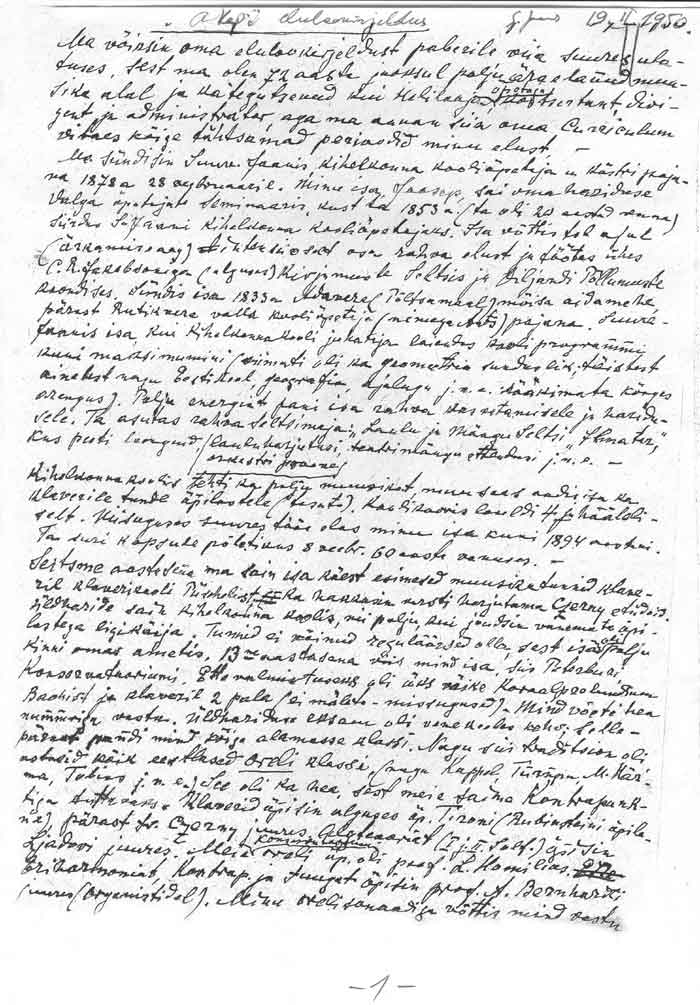 A. Kapi elulookirjeldus 19 II 1950.
Ma võirsin oma elulookirjeldust paberile viia suures ula-
tuses, sest ma olen 72 aasta jooksul palju ära elanud muu-
sika alal ja ka tegutsenud kui helilooja, õpetaja kontsertant, diri-
gent ja administrator, aga ma annan siia oma Curiculum
vitaes kõige tähtsamad perioodid minu elust –
Ma sündisin Suure-Jaanis kihelkonna kooliõpetaja u. köstri poja-
na 1878 a 28 veebruaril. Minu isa, Joosep, sai oma hariduse
Valga õpetajate seminaris, kust ta 1853 a. (ta oli 20 aastat vana)
siirdus S. Jaani kihelkonna kooliõpetajaks. Isa võttis tol ajal
(ärkamisaeg) intensiivset osa rahva elust ja töötas ühes
C. R. Jakobsoniga (alguses) Kirjameeste Seltsis ja Viljandi Põllumeeste
koondises. Sündis isa 1833 a Adavere (Põltsamaal) mõisa aidamehe
pärast Rutikvere valla kooliõpetaja (nimega Ants) pojana. Suure-
Jaanis isa, kui kihelkonnakooli juhataja laiendas kooli programmi
kuni maksimumini (viimati oli ka geomeetria sunduslik, teistest
ainetest nagu Eesti keel, geografia, ajalugu j.n.e. rääkimata kõrges
arengus). Palju energiat pani isa rahva kasvatamisele ja haridu-
sele. Ta asutas rahva seltsimaja, "Laulu ja Mängu Seltsi "Ilmatar",
kus peeti loenguid, lauluharjutusi, teatrimängu etendusi j.n.e. –
orkestri proove
Kihelkonnakoolis tehti ka palju muusikat, muu seas andis isa ka
klaverile tunde õpilastele (tasuta). Koolikooris lauldi 4 ja häälseli-
selt. Niisuguses suures töös olas minu isa kuni 1894 aastani.
Ta suri kopsude põletikus 8 veebr. 60 aasta vanuses. –
Seitsme aastasena ma sain isa käest esimesed muusika tunnid klave-
ril klaverikooli ka hakkasin varsti harjutama Czerny etüüdid.
Üldharidse sain kihelkonna koolis, nii palju, kui jõudsin vanemate õpi-
lastega ligi käija. Tunnid ei võinud reguläärsed olla, sest isa oli palju
kinni omas ametis. 13-ne aastasena viis mind isa, siis Peterburi,
Konservatooriumi. Ettevalmistuseks oli üks väike Koraalpreluudium
Bachist ja klaveril 2 pala (ei mäleta missugused). Mind võeti hea
numbriga vastu. Üldhariduse eksam oli vene keeles kehv, selle-
pärast pandi mind kõige alamasse klassi. Nagu siis traditsioon oli
astusid kõik eestlased oreli klassi, (nagu Kappel, Türnpu, M. Här-
ma, Tobias j.n.e.) See oli ka hea, sest meie saime Kontrapunk-
Klaverid õpisin alguses õp. Tironi (Rubinsteini õpila-
ne), pärast pr. Czerny juures. (I j. II. Solf.) õpisin
Ljadovi juures. Meie oreli õp. oli prof. L. Homilius.
Eriharmooniat, Kontrap. ja Fuugat õpisin prof. A. Bernhardi
juures (organistidel). Minu orelisonaadiga võttis mind vastu
– 1 –